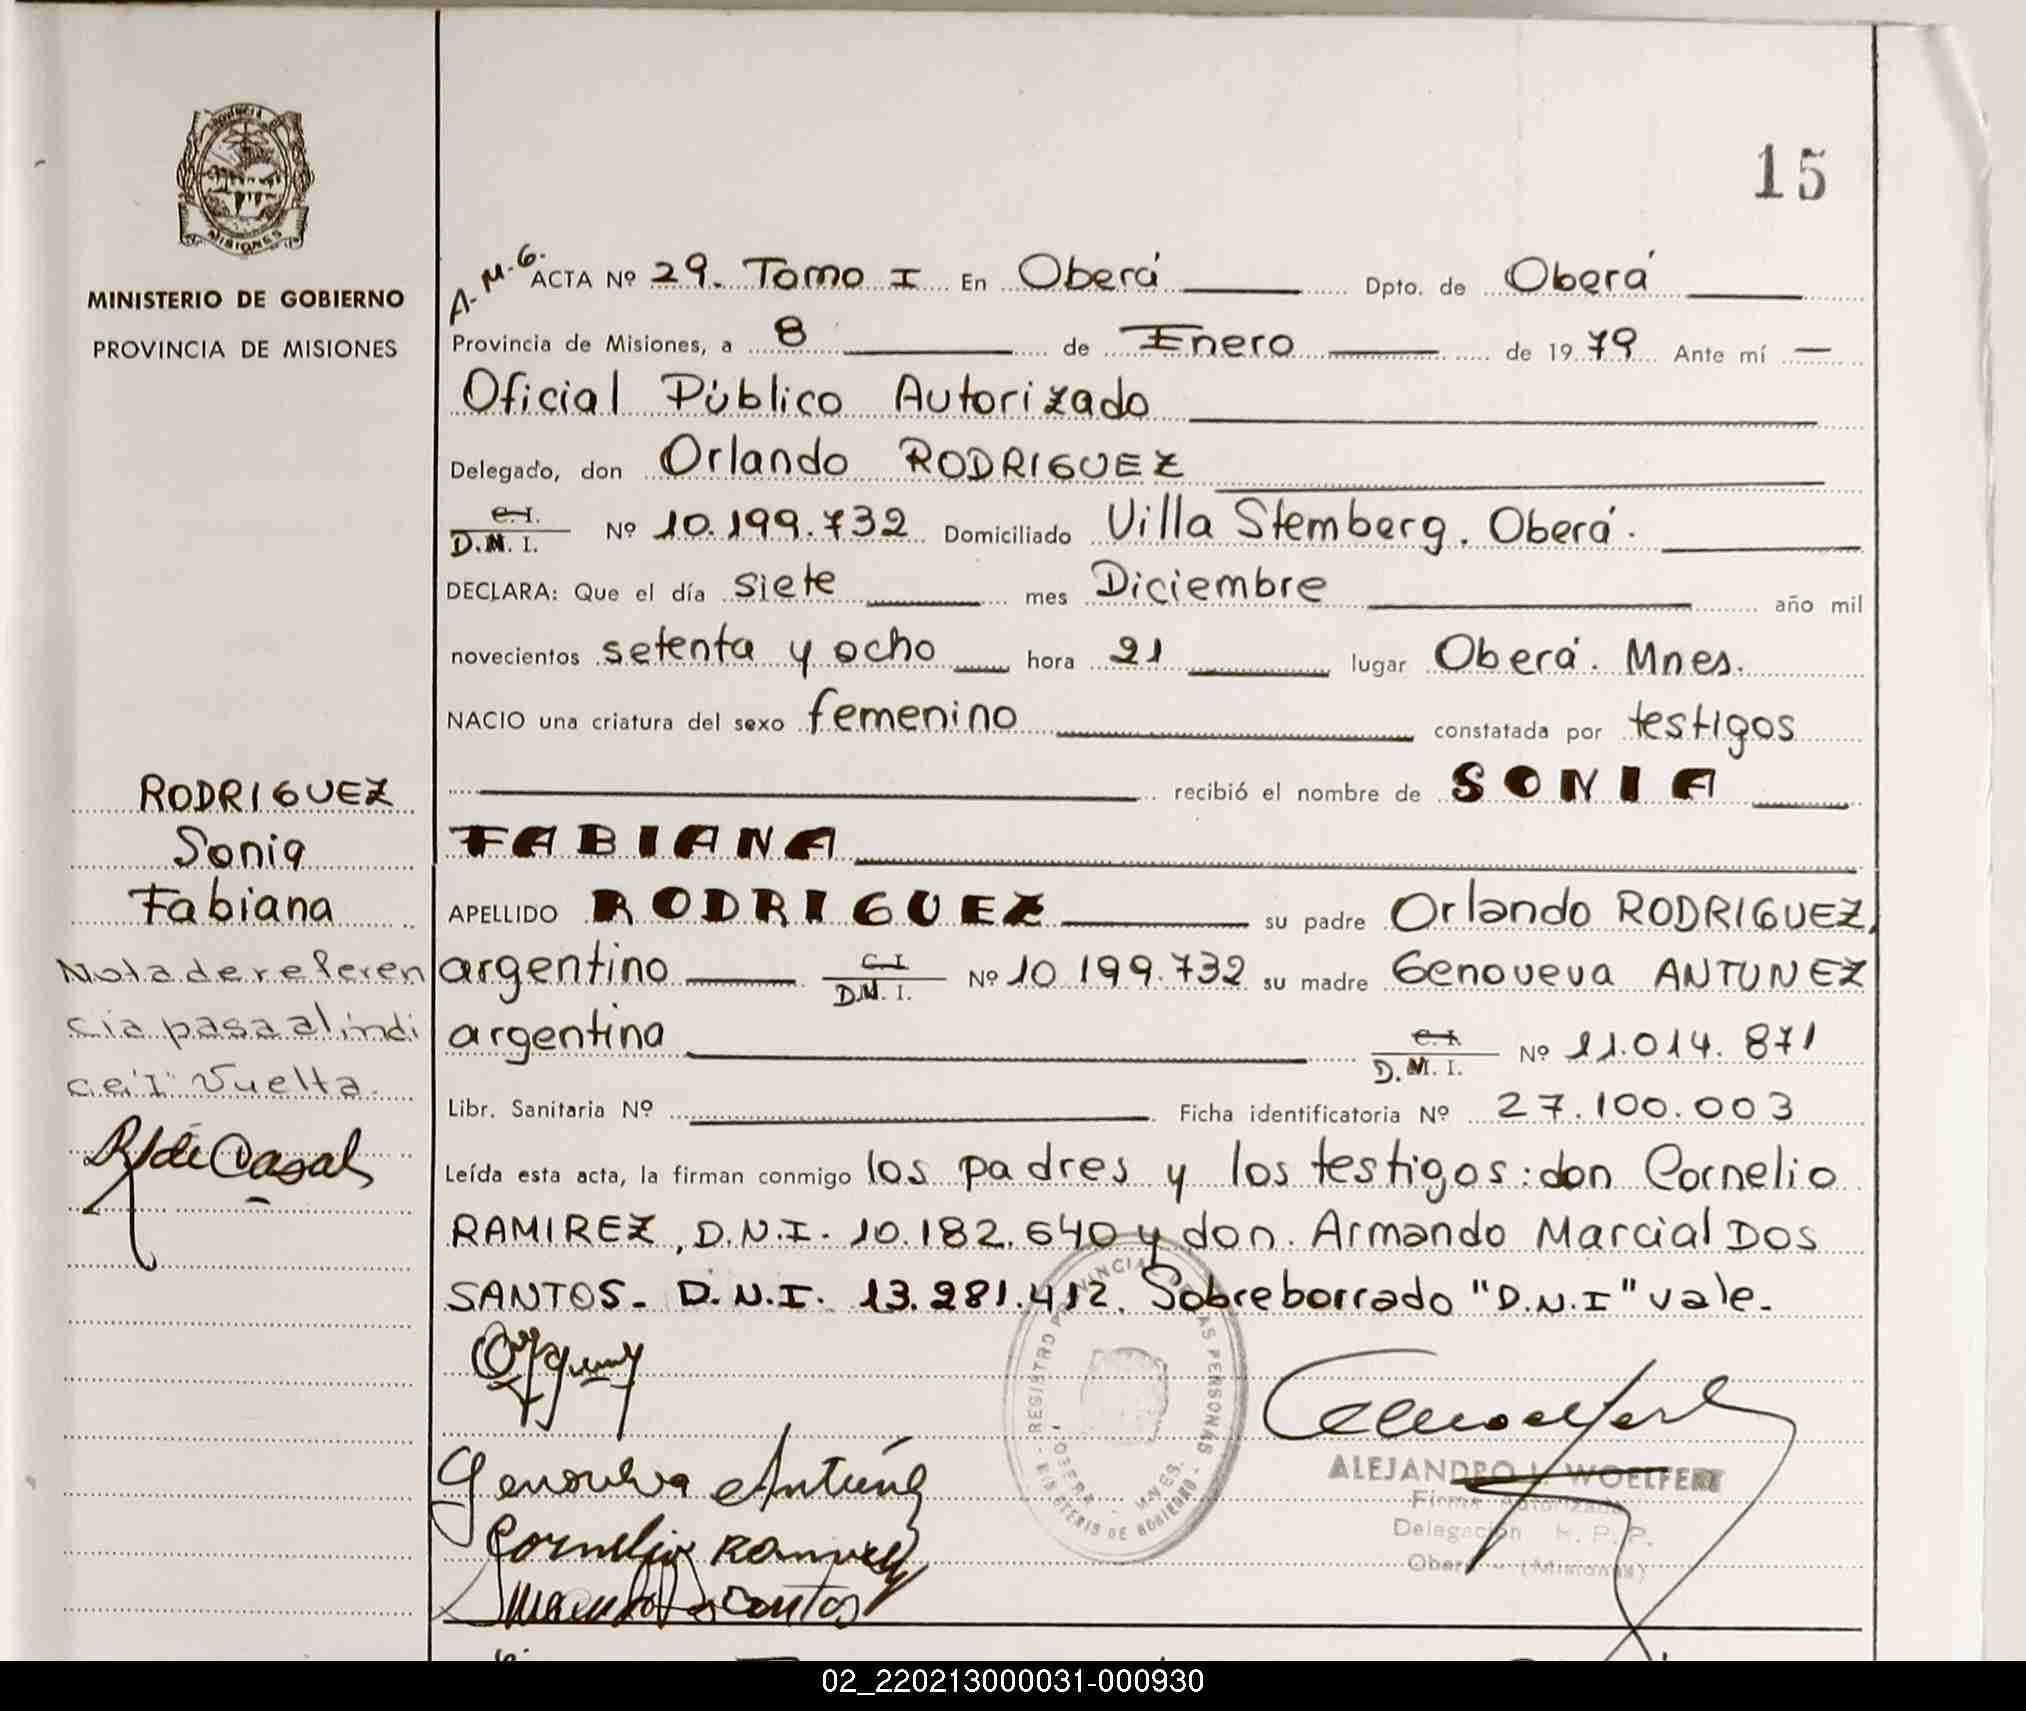 15
PROVINCIA DE
MISIONES
MINISTERIO DE GOBIERNO
PROVINCIA DE MISIONES
A.M.G. ACTA Nº 29. Tomo I En Oberá Dpto. de Oberá
Provincia de Misiones, a 8 de Enero de 1979 Ante mí
Oficial Público Autorizado
Delegado, don Orlando RODRIGUEZ
C.I.
D.N.I. Nº 10.199.732 Domiciliado Villa Stemberg. Oberá.
DECLARA: Que el día siete mes Diciembre año mil
novecientos setenta y ocho hora 21 lugar Oberá. Mnes.
NACIO una criatura del sexo femenino constatada por testigos
recibió el nombre de SONIA
FABIANA
APELLIDO RODRIGUEZ su padre Orlando RODRIGUEZ,
argentino C.I. D.N.I. Nº 10.199.732 su madre Genoveva ANTUNEZ
argentina C.I. D.N.I. Nº 11.014.871
Libr. Sanitaria Nº Ficha identificatoria Nº 27.100.003
Leída esta acta, la firman conmigo los padres y los testigos: don Cornelio
RAMIREZ, D.N.I. 10.182.640 y don. Armando Marcial Dos
SANTOS. D.N.I. 13.281.412. Sobreborrado "D.N.I" vale.
RODRIGUEZ
Sonia
Fabiana
Nota de referen
cia pasa al indi
ce "I" Vuelta.
R de Casal
Genoveva Antúnez
Cornelio Ramirez
REGISTRO PROVINCIAL DE LAS PERSONAS
MINISTERIO DE GOBIERNO
OBERA - MNES.
ALEJANDRO L. WOELFERT
Firma Autorizada
Delegación R. P. P.
Oberá - (Misiones)
02_220213000031-000930